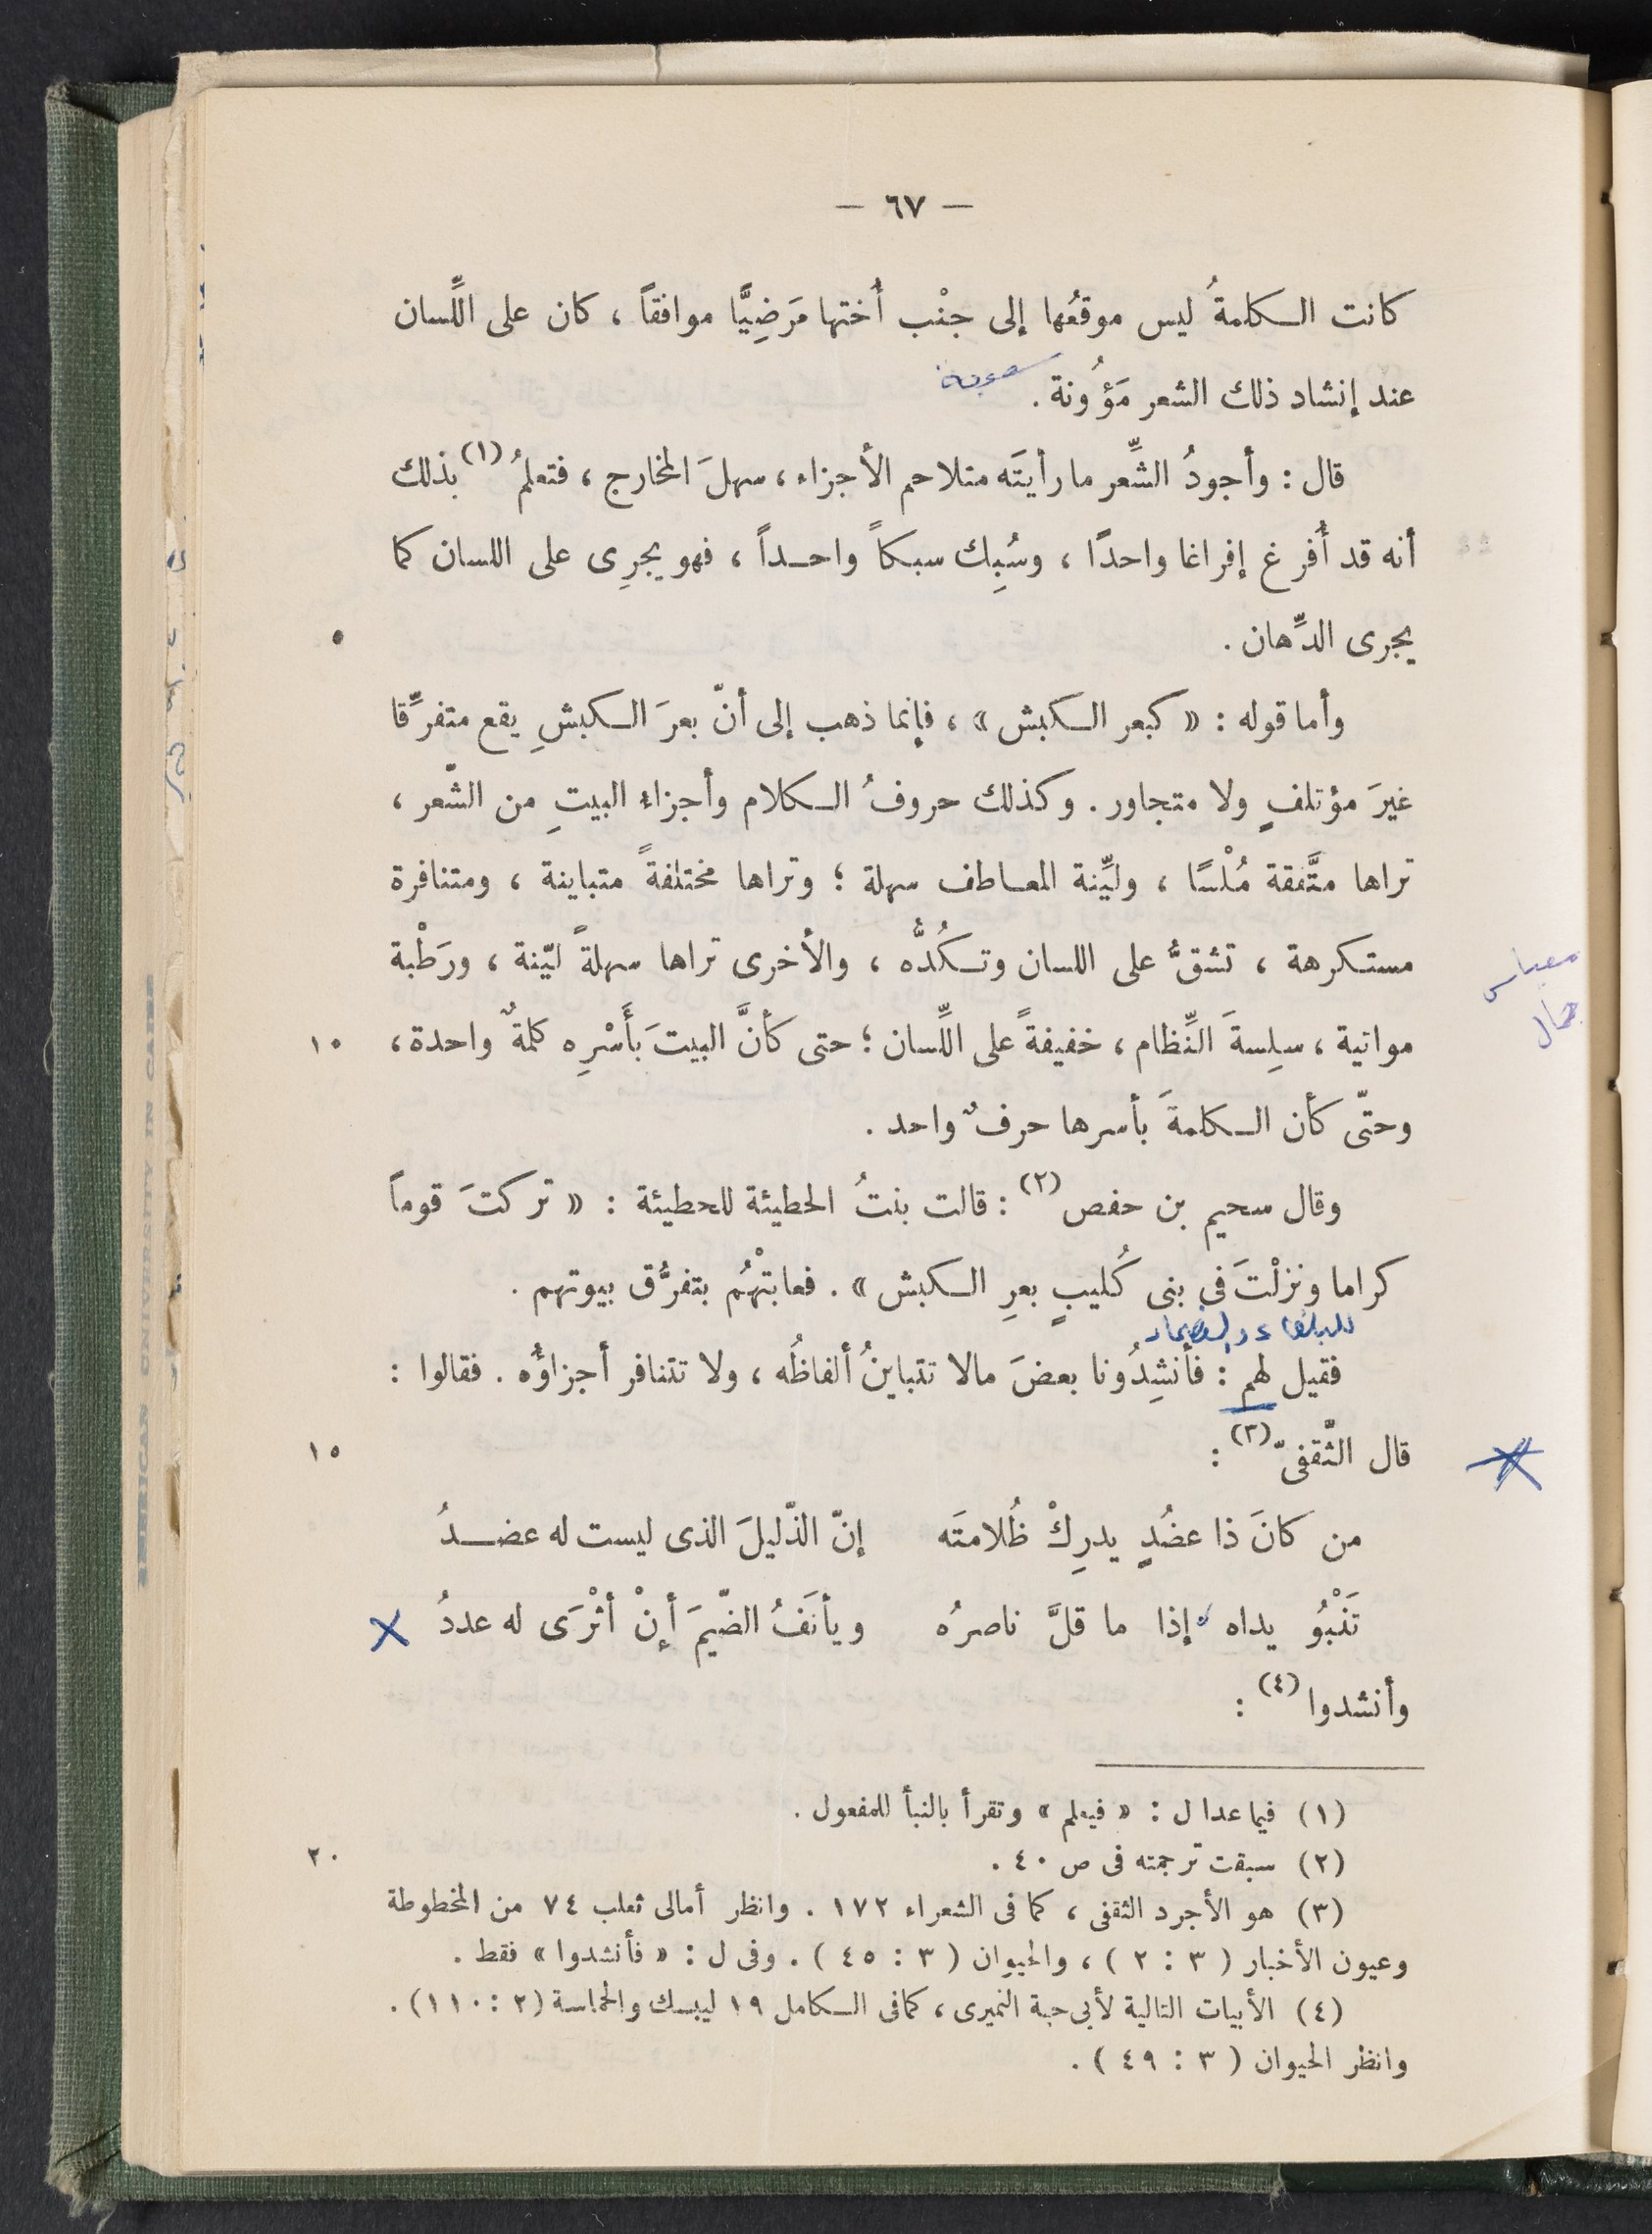 — ٦٧ —
كانت الكلمةُ ليس موقعُها إلى جنْب أُختها مَرَضِيًّا موافقاً ، كان على اللِّسان
عند إنشاد ذلك الشعر مَؤُونة . صعوبة
قال : وأجودُ الشِّعر ما رأيتَه متلاحم الأجزاء ، سهلَ المخارج ، فتعلمُ (١) بذلك
أنه قد أُفرغ إفراغا واحدًا ، وسُبِك سبكاً واحـداً ، فهو يجرِى على اللسان كما
يجرى الدِّهان . ٥
وأما قوله : « كبعر الكبش » ، فإنما ذهب إلى أنّ بعرَ الكبشِ يقع متفرِّقا
غيرَ مؤتلفٍ ولا متجاور . وكذلك حروفُ الكلام وأجزاء البيتِ من الشّعر ،
تراها متَّفقة مُلْسًا ، وليِّنة المعـاطف سهلة ؛ وتراها مختلفةً متباينة ، ومتنافرة
مستكرهة ، تشقُّ على اللسان وتكُدُّه ، والأخرى تراها سهلةً ليّنة ، ورَطْبة
معيار
مواتية ، سلِسةَ النِّظام ، خفيفةً على اللِّسان ؛ حتى كأنَّ البيتَ بأَسْرِه كلمةٌ واحدة ، ١٠
جمال
وحتّى كأن الكلمةَ بأسرها حرفٌ واحد .
وقال سحيم بن حفص (٢) : قالت بنتُ الحطيئة للحطيئة : « تركتَ قوماً
كراما ونزلْتَ فى بنى كُليبٍ بعرِ الكبش » . فعابتْهُم بتفرُّق بيوتهم .
للبلغاء والفصحاء
فقيل لهم : فأنشِدُونا بعضَ مالا تتباينُ ألفاظُه ، ولا تتنافر أجزاؤُه . فقالوا :
قال الثَّقفىّ (٣) : ١٥
من كانَ ذا عضُدٍ يدرِكْ ظُلامتَه إنّ الذّليلَ الذى ليست له عضـدُ
تَنْبُو يداه إذا ما قلَّ ناصرُه ويأنَفُ الضّيمَ إنْ أثْرَى له عددُ
وأنشدوا (٤) :
(١) فيما عدا ل : « فيعلم » وتقرأ بالنبأ للمفعول .
(٢) سبقت ترجمته فى ص ٤٠ . ٢٠
(٣) هو الأجرد الثقفى ، كما فى الشعراء ١٧٢ . وانظر أمالى ثعلب ٧٤ من المخطوطة
وعيون الأخبار ( ٣ : ٢ ) ، والحيوان ( ٣ : ٤٥ ) . وفى ل : « فأنشدوا » فقط .
(٤) الأبيات التالية لأبى حية النميرى ، كما فى الكامل ١٩ ليبسك والحماسة (٢ : ١١٠) .
وانظر الحيوان ( ٣ : ٤٩ ) .